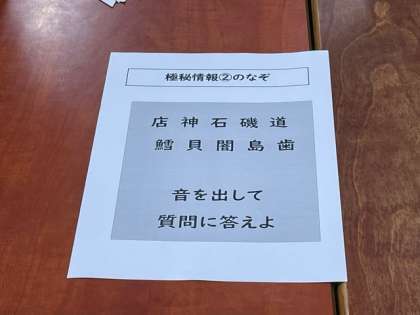 極秘情報②のなぞ
店神石磯道
鱈貝闇島歯
音を出して
質問に答えよ